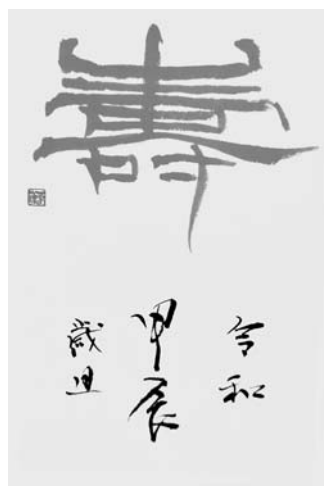 壽
令和
甲辰
歳旦